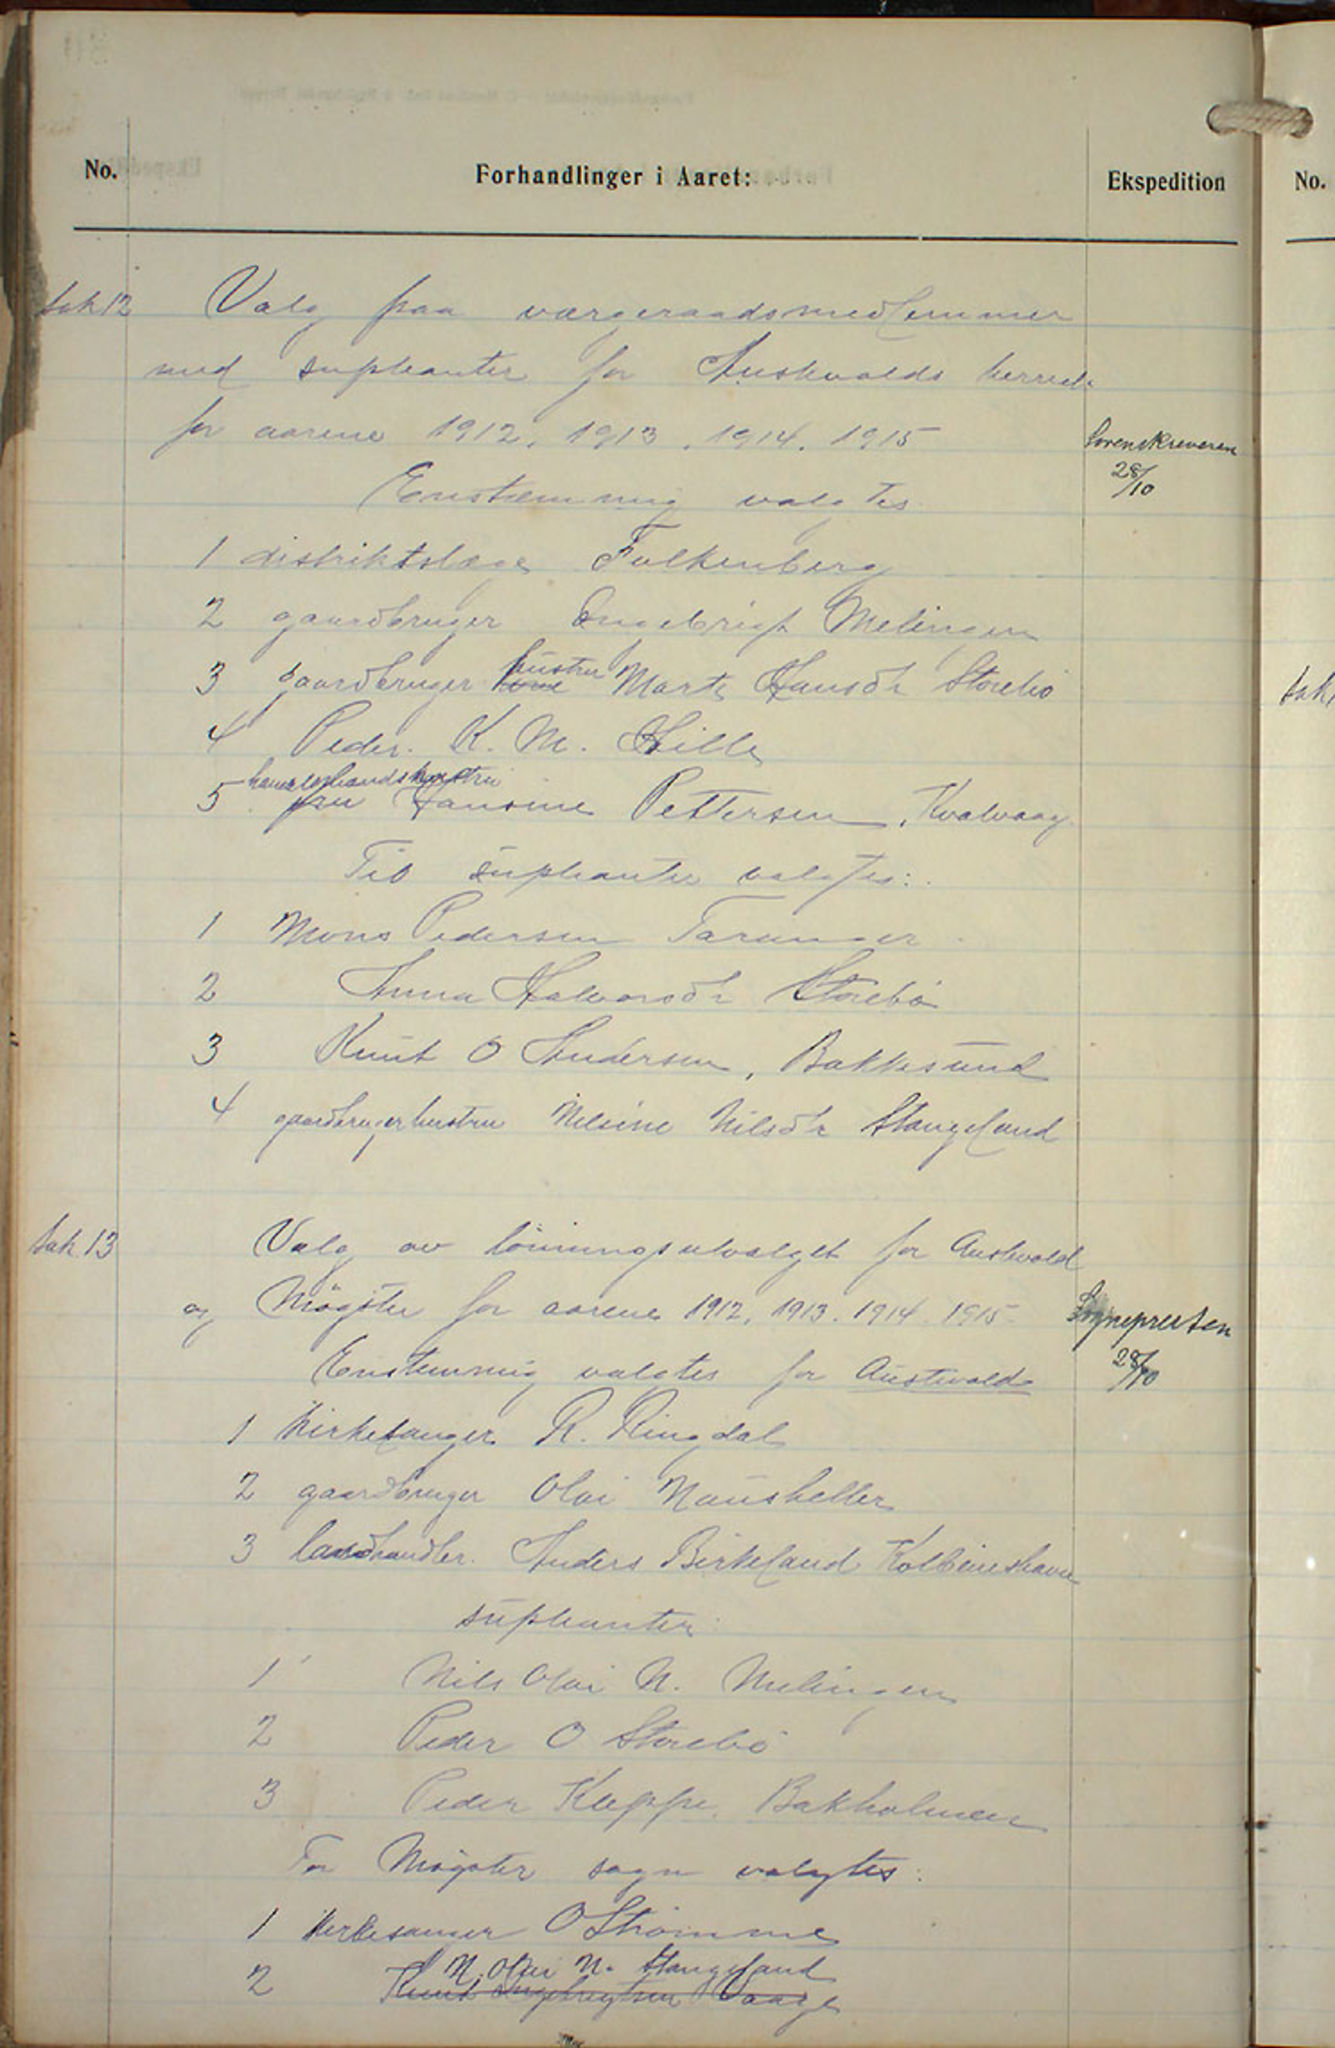 No.
Forhandlinger i Aaret:
Ekspedition
No.
Sak 12
Valg paa værgeraadsmedlemmer
med suppleanter for Austevolds herred
for aarene 1912, 1913, 1914, 1915
Sorenskriveren
28/10
Enstemmig valgtes
1 distriktslæge Falkenberg
2 gaardbruger Ingebrigt Melingen
3 gaardbruger hustru Marte Hansdtr Storebø
Sak
4 Peder K. M. Hille
5 fru Hansine Pettersen, Kvalvaag
Til supleanter valgtes:
1 Mons Pedersen Taranger
2 Anna Halvorsdtr Storebø
3 Knut O Andersen, Bakkesund
4 gaardbrugerhustru Nilsine Nilsdtr Stangeland
Sak 13
Valg av lönningsutvalget for Austevold
og Møgster for aarene 1912, 1913. 1914. 1915
Sognepresten
28/10
Enstemmig valgtes for Austevold
1 Kirkesanger R. Ringdal
2 gaardbruger Olai Naustheller
3 landhandler Anders Birkeland Kolbeinshavn
supleanter:
1 Nils Olai N. Melingen
2 Peder O Storebø
3 Peder Kleppe, Bakholmen
For Møgster sogn valgtes:
1 Kirkesanger O Strømme
N. Olai N. Stangeland
2 Knut Ingebrigtsen Vaage